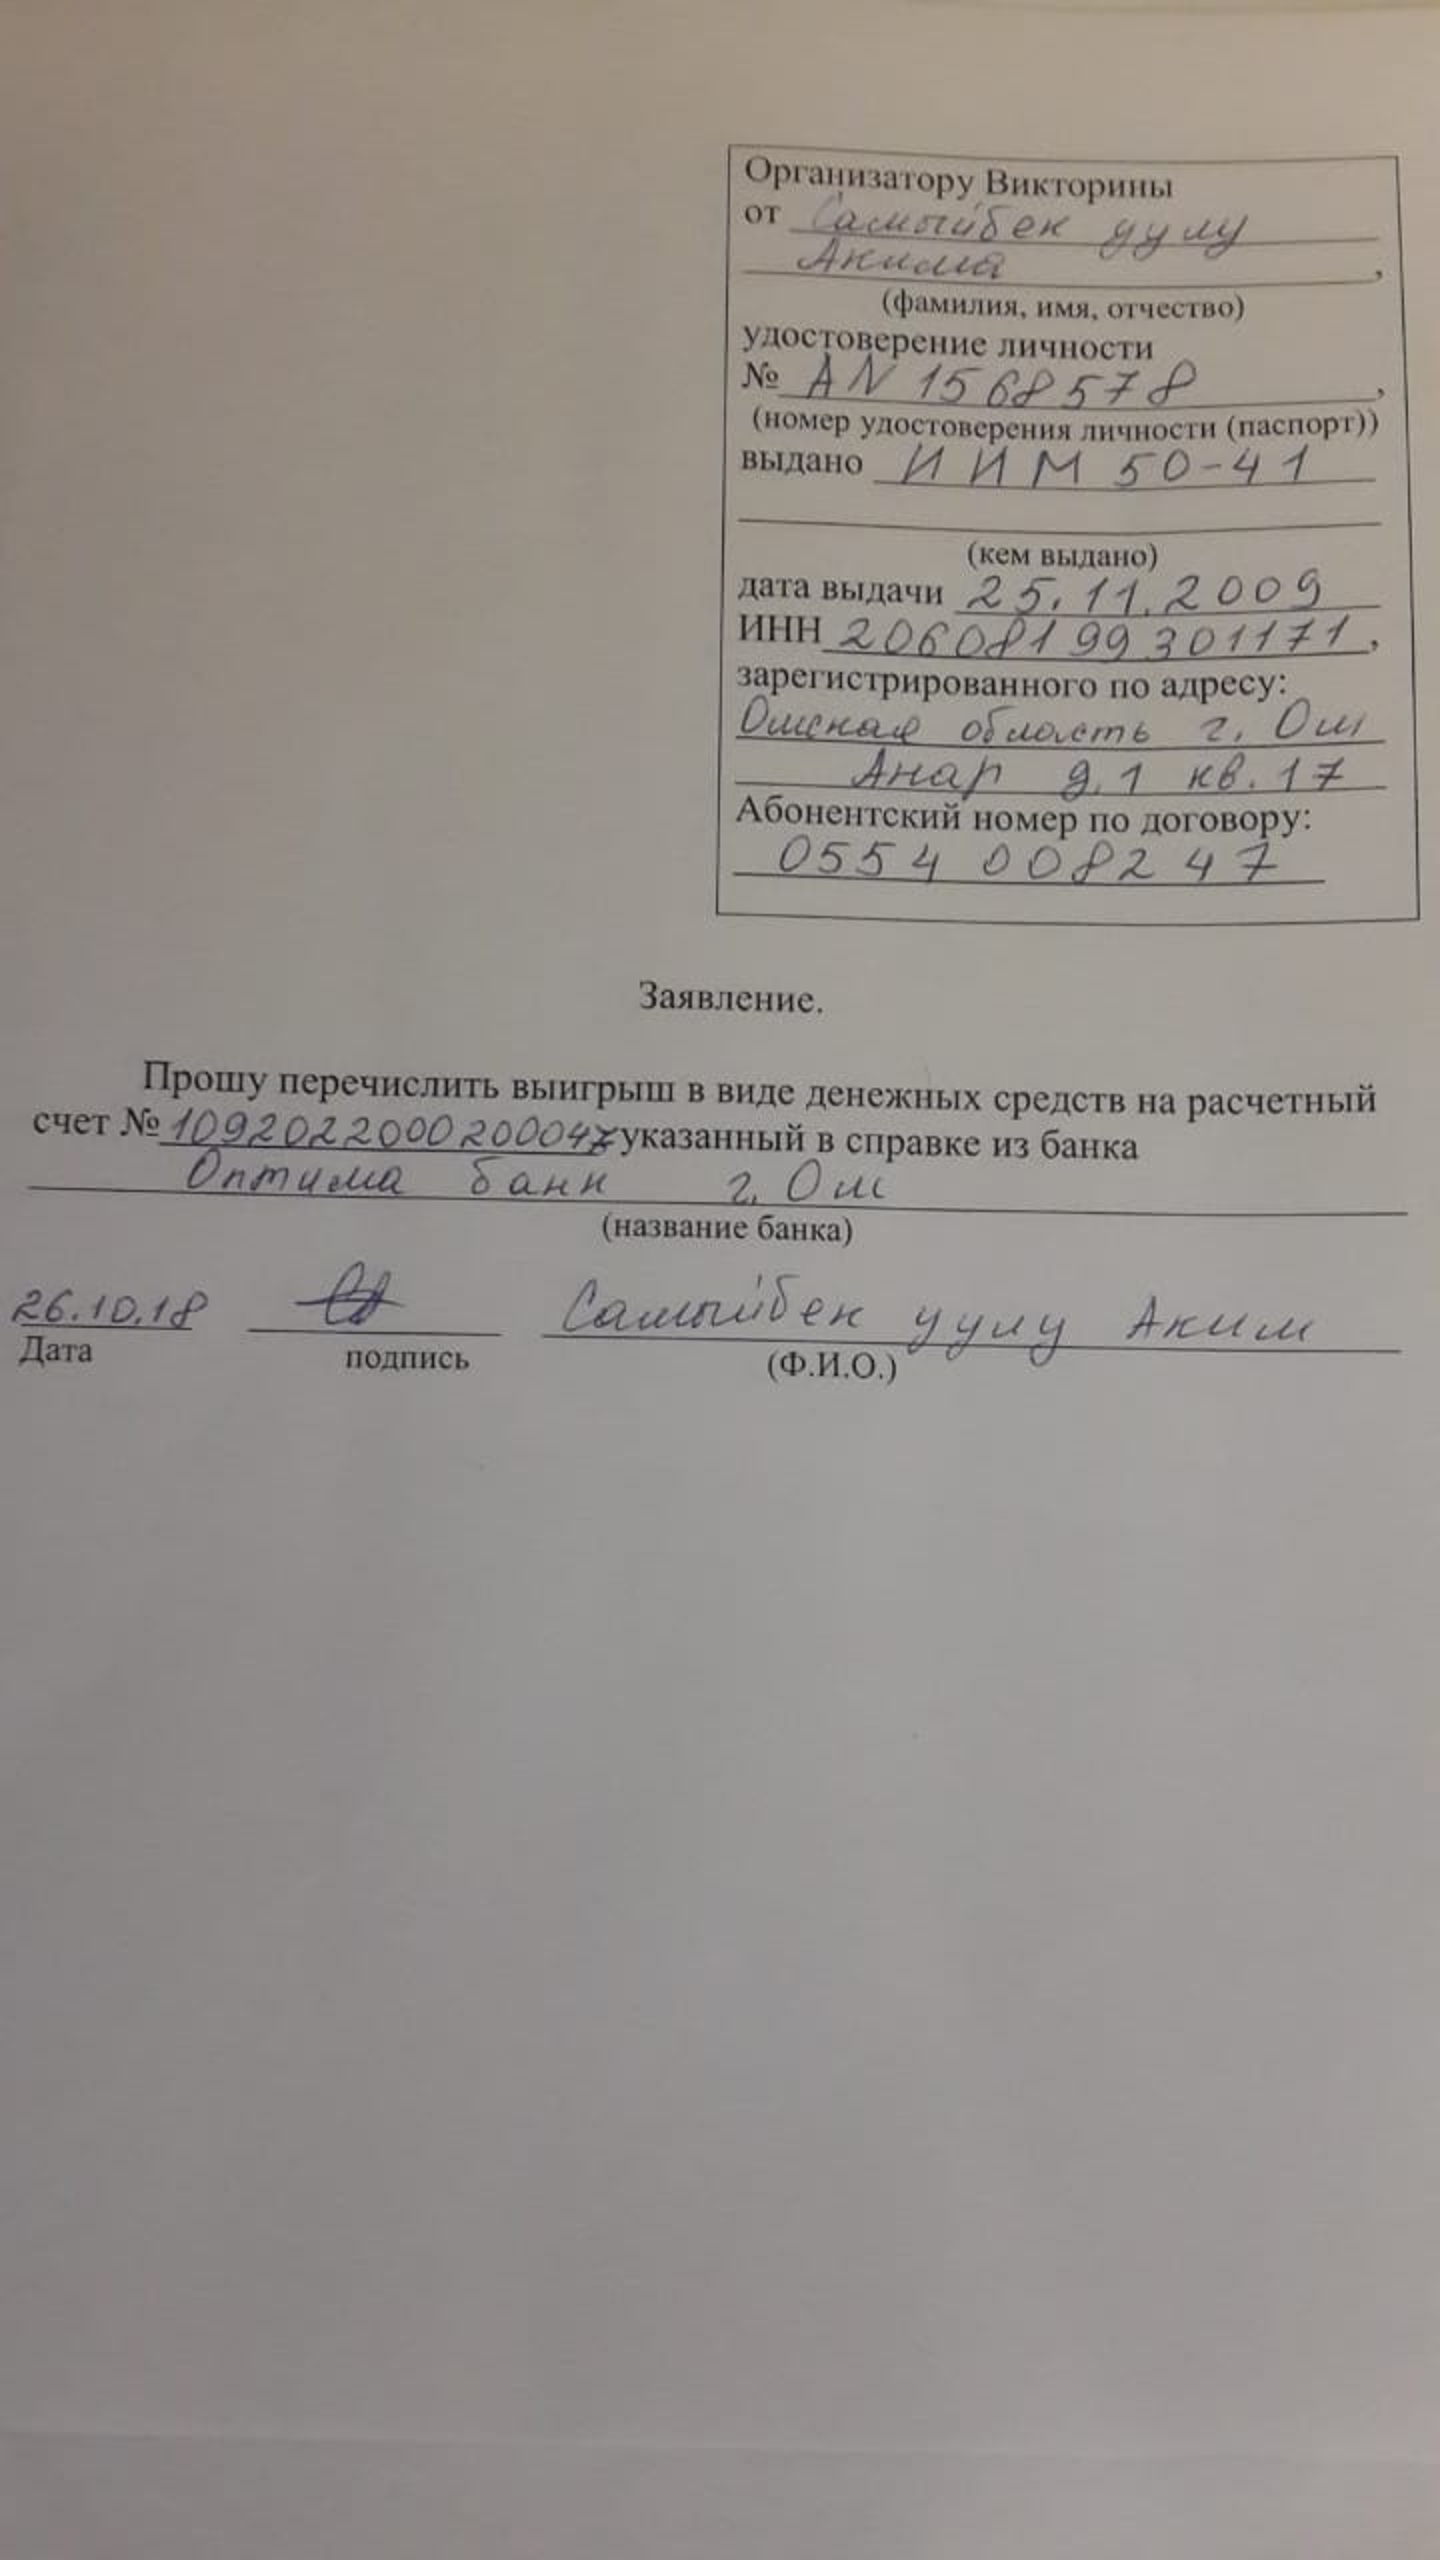 Организатору Викторины
от Самыйбек уулу
Акима,
(фамилия, имя, отчество)
удостоверение личности
№ AN 1568578,
(номер удостоверения личности (паспорт))
выдано ИИМ 50-41
(кем выдано)
дата выдачи 25.11.2009
ИНН 20608199301171,
зарегистрированного по адресу:
Ошская область г. Ош
Анар д.1 кв.17
Абонентский номер по договору:
0554 008247
Заявление.
Прошу перечислить выигрыш в виде денежных средств на расчетный
счет № 1092022000200047 указанный в справке из банка
Оптима банк г. Ош
(название банка)
26.10.18 Самыйбек уулу Аким
Дата подпись (Ф.И.О.)